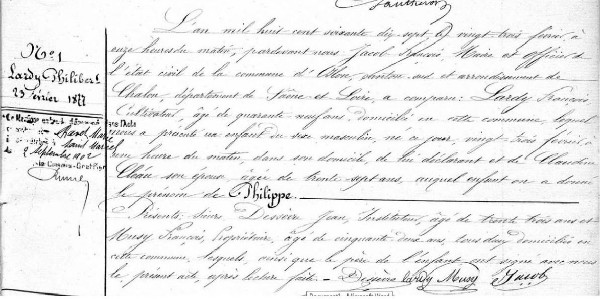 Gautheron
N° 1
Lardy Philibert
23 février 1877
L'an mil huit cent soixante dix sept, le vingt trois février, à
onze heures du matin, pardevant nous Jacob François, Maire et officier de
l'état civil de la commune d'Oslon, canton sud et arrondissement de
Chalon, département de Saône et Loire, a comparu: Lardy François
Cultivateur, âgé de quarante neuf ans, domicilié en cette commune, lequel
nous a présenté un enfant du sexe masculin, né ce jour, vingt trois février à
une heure du matin, dans son domicile, de lui déclarant et de Claudine
son épouse, âgée de trente sept ans, auquel enfant on a donné
le prénom de Philippe.
Présents: Sieurs Jean, Instituteur, âgé de trente trois ans et
Musy François, Propriétaire, âgé de cinquante deux ans, tous deux domiciliés en
cette commune, lesquels, ainsi que le père de l'enfant ont signé avec nous
le présent acte, après lecture faite. Lardy Musy Jacob